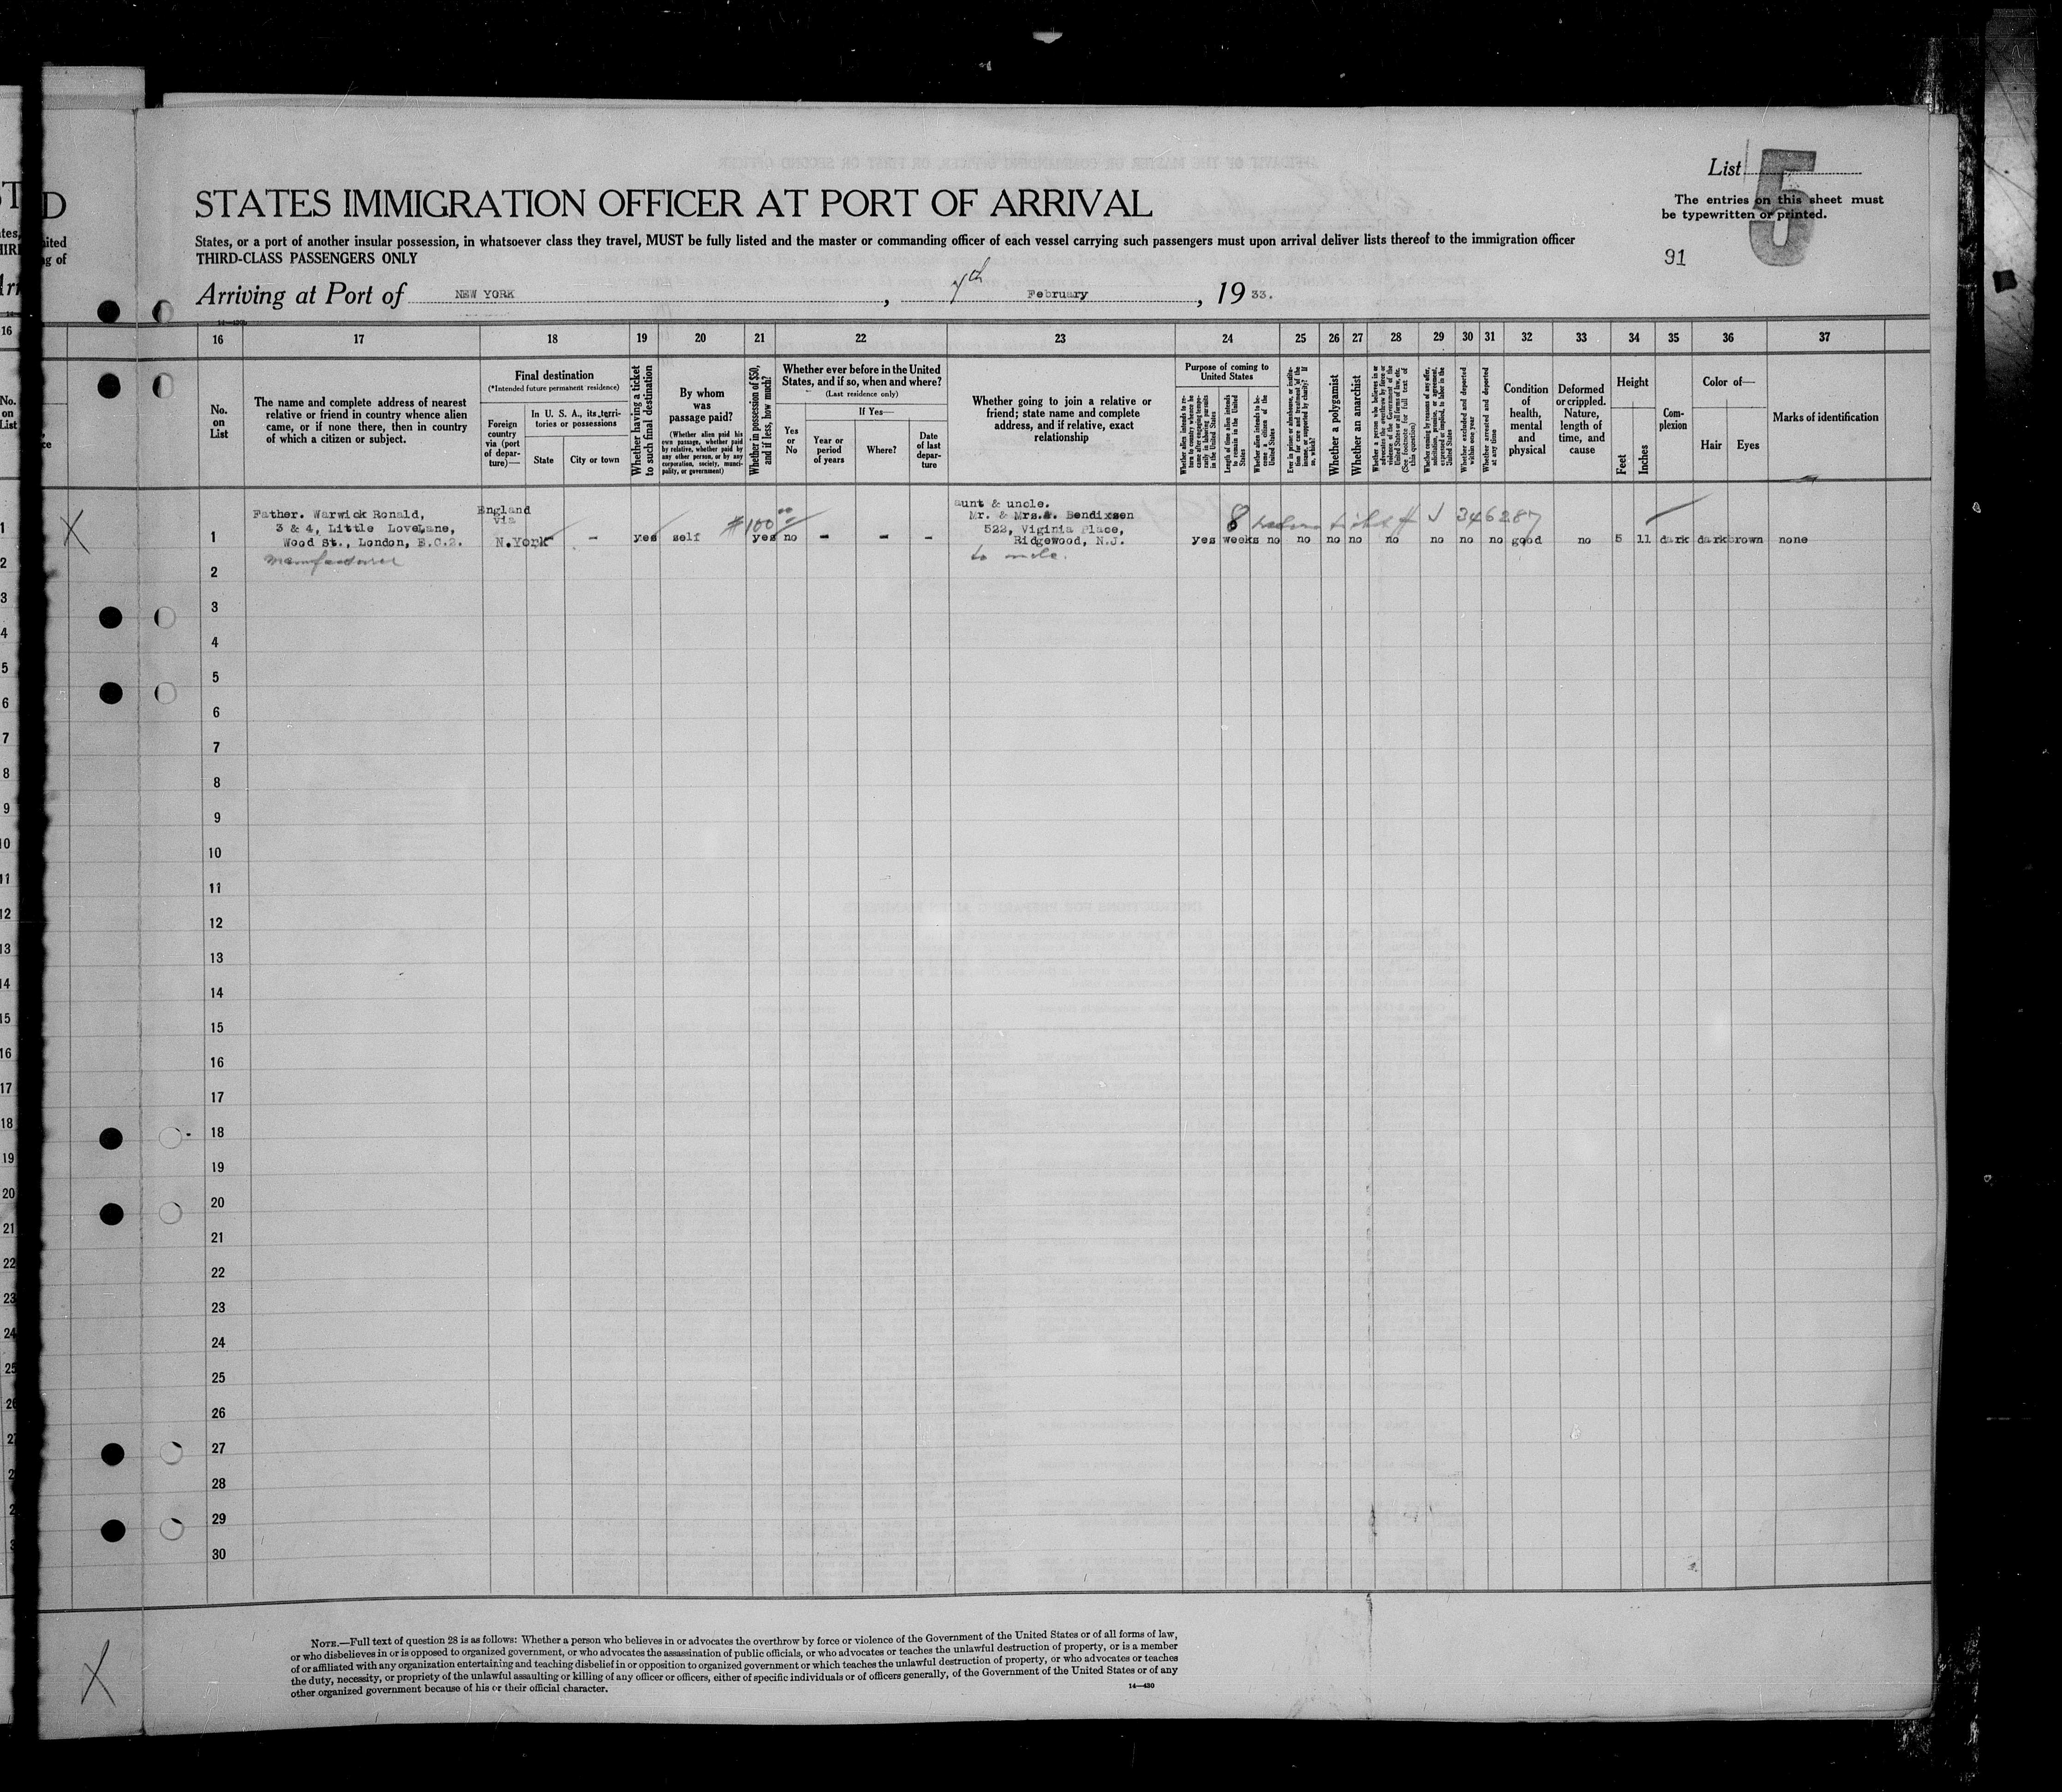 List 5
The entries on this sheet must
be typewritten or printed.
91
STATES IMMIGRATION OFFICER AT PORT OF ARRIVAL
States, or a port of another insular possession, in whatsoever class they travel, MUST be fully listed and the master or commanding officer of each vessel carrying such passengers must upon arrival deliver lists thereof to the immigration officer
THIRD-CLASS PASSENGERS ONLY
Arriving at Port of NEW YORK, 7th February, 1933.
16 17 18 19 20 21 22 23 24 25 26 27 28 29 30 31 32 33 34 35 36 37
No.
on
List
The name and complete address of nearest
relative or friend in country whence alien
came, or if none there, then in country
of which a citizen or subject.
Final destination
(*Intended future permanent residence)
Foreign
country
via (port
of depar-
ture)—
In U. S. A., its terri-
tories or possessions
State
City or town
Whether having a ticket
to such final destination
By whom
was
passage paid?
(Whether alien paid his
own passage, whether paid
by relative, whether paid by
any other person, or by any
corporation, society, munci-
pality, or government)
Whether in possession of $50,
and if less, how much?
Whether ever before in the United
States, and if so, when and where?
(Last residence only)
Yes
or
No
If Yes—
Year or
period
of years
Where?
Date
of last
depar-
ture
Whether going to join a relative or
friend; state name and complete
address, and if relative, exact
relationship
Purpose of coming to
United States
Length of time alien intends
to remain in the United
States
Whether alien intends to be-
come a citizen of the
United States
Whether a polygamist
Whether an anarchist
Whether excluded and deported
within one year
Whether arrested and deported
at any time
Condition
of
health,
mental
and
physical
Deformed
or crippled.
Nature,
length of
time, and
cause
Height
Feet
Inches
Com-
plexion
Color of—
Hair
Eyes
Marks of identification
Father. Warwick Ronald,
3 & 4, Little LoveLane,
Wood St., London, E.C.2.
England
via
N.York
- yes self yes no - - -
$100
aunt & uncle.
Mr. & Mrs.A. Bendixsen
522, Viginia Place,
Ridgewood, N.J.
to uncle.
8 346287
yes weeks no no no no no no no no good no 5 11 dark dark brown none
1
2
3
4
5
6
7
8
9
10
11
12
13
14
15
16
17
18
19
20
21
22
23
24
25
26
27
28
29
30
NOTE.—Full text of question 28 is as follows: Whether a person who believes in or advocates the overthrow by force or violence of the Government of the United States or of all forms of law,
or who disbelieves in or is opposed to organized government, or who advocates the assassination of public officials, or who advocates or teaches the unlawful destruction of property, or is a member
of or affiliated with any organization entertaining and teaching disbelief in or opposition to organized government or which teaches the unlawful destruction of property, or who advocates or teaches
the duty, necessity, or propriety of the unlawful assaulting or killing of any officer or officers, either of specific individuals or of officers generally, of the Government of the United States or of any
other organized government because of his or their official character.
14—430